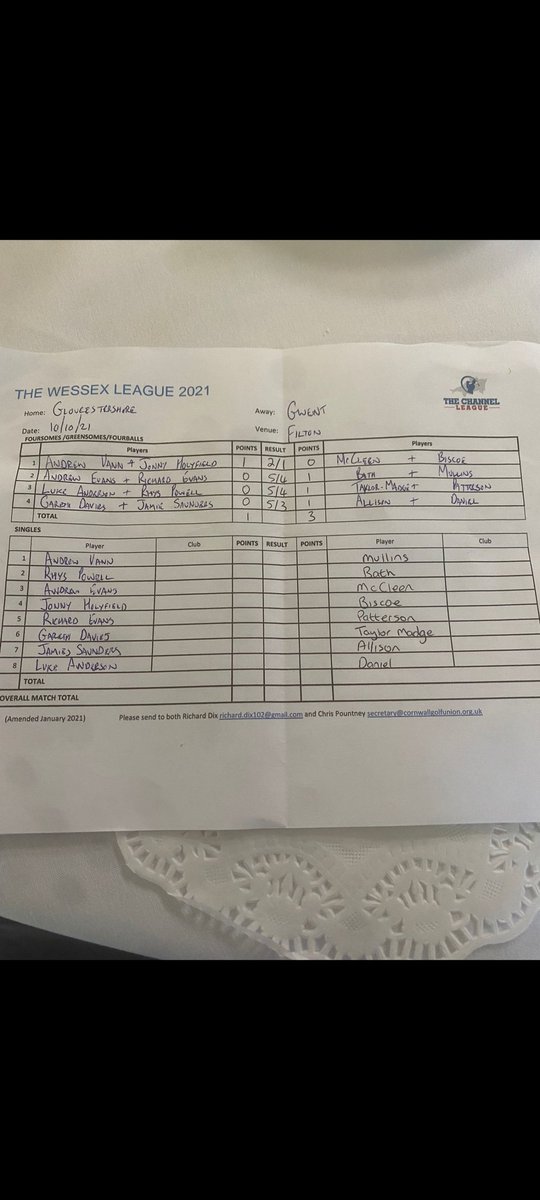 THE WESSEX LEAGUE 2021
THE CHANNEL
LEAGUE
Home: GLOUCESTERSHIRE Away: GWENT
Date: 10/10/21 Venue: FILTON
FOURSOMES /GREENSOMES/FOURBALLS
Players POINTS RESULT POINTS Players
1 ANDREW VANN + JONNY HOLYFIELD 1 2/1 0 McCLEEN + BISCOE
2 ANDREW EVANS + RICHARD EVANS 0 5/4 1 BATH + MULLINS
3 LUKE ANDERSON + RHYS POWELL 0 5/4 1 TAYLOR-MADGE + PATTERSON
4 GARETH DAVIES + JAMIE SAUNDERS 0 5/3 1 ALLISON + DANIEL
TOTAL 1 3
SINGLES
Player Club POINTS RESULT POINTS Player Club
1 ANDREW VANN Mullins
2 RHYS POWELL Bath
3 ANDREW EVANS McCleen
4 JONNY HOLYFIELD Biscoe
5 RICHARD EVANS Patterson
6 GARETH DAVIES Taylor Madge
7 JAMIE SAUNDERS Allison
8 LUKE ANDERSON Daniel
TOTAL
OVERALL MATCH TOTAL
(Amended January 2021) Please send to both Richard Dix richard.dix102@gmail.com and Chris Pountney secretary@cornwallgolfunion.org.uk